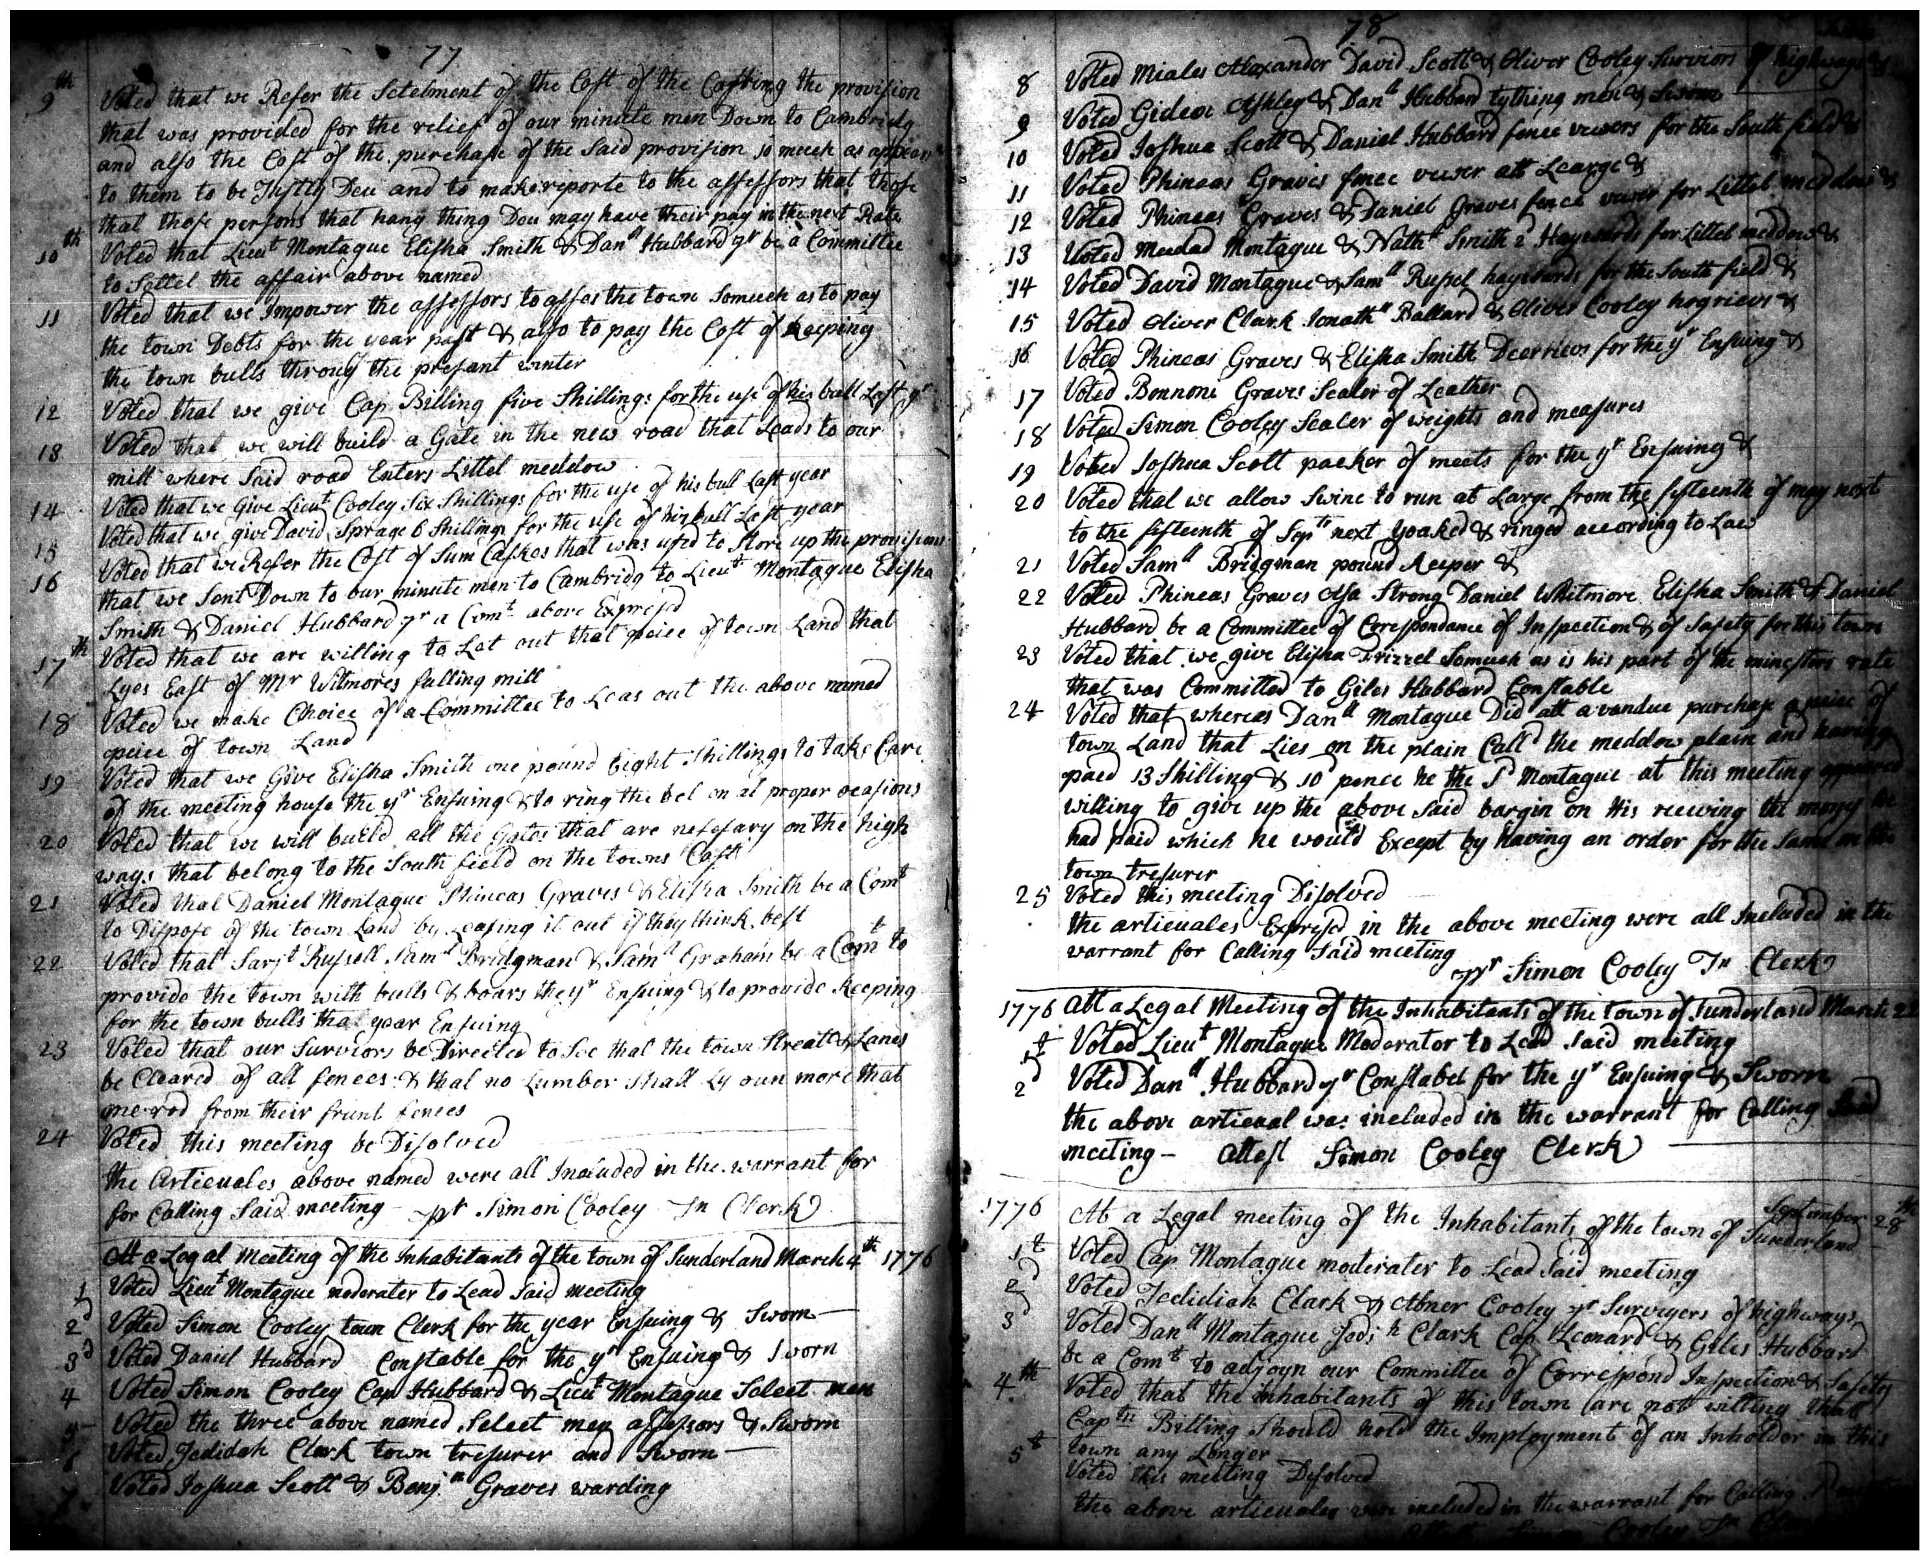 77
9th Voted that we Refer the Setelment of the Cost of the Carting the provision
that was provided for the relief of our minute men Down to Cambridg
and also the Cost of the purchase of the Said provision so much as appear
to them to be Justly Deu and to make reporte to the assessors that those
that those persons that hang thing Deu may have their pay in the next Rate
10th Voted that Lieut Montague Elisha Smith & Danll Hubbard yr be a Committee
to Settel the affair above named
11 Voted that we Impower the assessors to asses the town Somuch as to pay
the town Debts for the year past & also to pay the Cost of keeping
the town bulls throug the presant winter
12 Voted that we give Cap Billing five Shillings for the use of his bull Last yr
13 Voted that we will build a Gate in the new road that Leads to our
mill where Said road Enters Littel meddow
14 Voted that we Give Lieut Cooley Six Shillings for the use of his bull Last year
15 Voted that we give David Sprage 6 Shillings for the use of his bull Last year
16 Voted that we Refer the Cost of Sum Caskes that was used to Store up the provisions
that we Sent Down to our minute men to Cambridg to Lieut Montague Elisha
Smith & Daniel Hubbard yr a Comt above Expresd
17th Voted that we are willing to Let out that peice of town Land that
Lyes East of Mr Witmores fulling mill
18 Voted we make Choice of a Committee to Leas out the above named
peice of town Land
19 Voted that we Give Elisha Smith one pound Eight Shillings to take Care
of the meeting house the yr Ensuing & to ring the bel on al proper ocasions
20 Voted that we will build all the Gates that are nesesary on the high
ways that belong to the South field on the towns Cost
21 Voted that Daniel Montague Phineas Graves & Elisha Smith be a Comt
to Dispose of the town Land by Leasing it out if they think best
22 Voted that Sarjt Russell Samll Bridgman & Samll Graham be a Comt to
provide the town with bulls & boars the yr Ensuing & to provide Keeping
for the town bulls that year Ensuing
23 Voted that our Surviors be Directed to See that the town Streat & Lanes
be Cleared of all fences & that no Lumber Shall Ly oun more that
one rod from their frunt fences
24 Voted this meeting be Disolved
the Articuales above named were all Included in the warrant for
for Calling Said meeting pr Simon Cooley Tn Clerk
Att a Legal meeting of the Inhabitants of the town of Sunderland March 4th 1776
1 Voted Lieut Montague moderater to Lead Said meeting
2d Voted Simon Cooley town Clerk for the year Ensuing & Sworn
3d Voted Daniel Hubbard Constable for the yr Ensuing & Sworn
4 Voted Simon Cooley Cap Hubbard & Lieut Montague Select men
5 Voted the three above named Select men assessors & Sworn
6 Voted Jedidah Clark town tresurer and Sworn
7 Voted Joshua Scott & Benjn Graves warding
78
8 Voted Miales Alexander David Scott & Oliver Cooley Surviors of highways &
9 Voted Gideon Ashley & Danll Hubbard tything men & Sworn
10 Voted Joshua Scott & Daniel Hubbard fence vewers for the South field &
11 Voted Phineas Graves fence vewer att Learge &
12 Voted Phineas Graves & Daniel Graves fence vewer for Littel meddow &
13 Voted Medad Montague & Nathll Smith 2 Haywards for Littel meddow &
14 Voted David Montague & Samll Rusel haywards for the South field &
15 Voted Oliver Clark Jonathn Ballard & Oliver Cooley hogrieves &
16 Voted Phineas Graves & Elisha Smith Deerrieves for the yr Ensuing &
17 Voted Bennoni Graves Sealer of Leather
18 Voted Simon Cooley Sealer of weights and measures
19 Voted Joshua Scott packer of meets for the yr Ensuing &
20 Voted that we allow Swine to run at Large from the fifteenth of may next
to the fifteenth of Septr next yoaked & ringed according to Law
21 Voted Samll Bridgman pound Keeper &
22 Voted Phineas Graves Asa Strong Daniel Whitmore Elisha Smith & Daniel
Hubbard be a Committee of Corespondance of Inspection & of Safety for this town
23 Voted that we give Elisha Frizzel Somuch as is his part of the minesters rate
that was Committed to Giles Hubbard Constable
24 Voted that whereas Danll Montague Did att a vandue purchase a peice of
town Land that Lies on the plain Calld the meddow plain and having
paed 13 Shilling & 10 pence he the Sd Montague at this meeting appeared
willing to give up the above Said bargin on his reewing the money he
had paid which he would Except by having an order for the Same on the
town tresurer
25 Voted this meeting Disolved
the articuales Expresd in the above meeting were all Included in the
warrant for Calling Said meeting
pr Simon Cooley Tn Clerk
1776 Att a Legal Meeting of the Inhabitants of the town of Sunderland March 22
1t Voted Lieut Montague Moderator to Lead Said meeting
2d Voted Danll Hubbard yr Constabel for the yr Ensuing & Sworn
the above articual was included in the warrant for Calling Said
meeting - Attest Simon Cooley Clerk
1776 At a Legal meeting of the Inhabitants of the town of Sunderland September 28th
1t Voted Cap Montague moderater to Lead Said meeting
2d Voted Jedidiah Clark & Abner Cooley yr Surveyers of highways
3d Voted Danll Montague Jedih Clark Cap Leonard & Giles Hubbard
be a Comt to adjoyn our Committee of Correspond Inspection & Safety
4th Voted that the inhabitants of this town are not willing that
Captn Billing Should hold the Imployment of an Inholder in this
town any Longer
5t Voted this meeting Disolved
the above articuales were included in the warrant for Calling
Attest Simon Cooley Tn Clerk